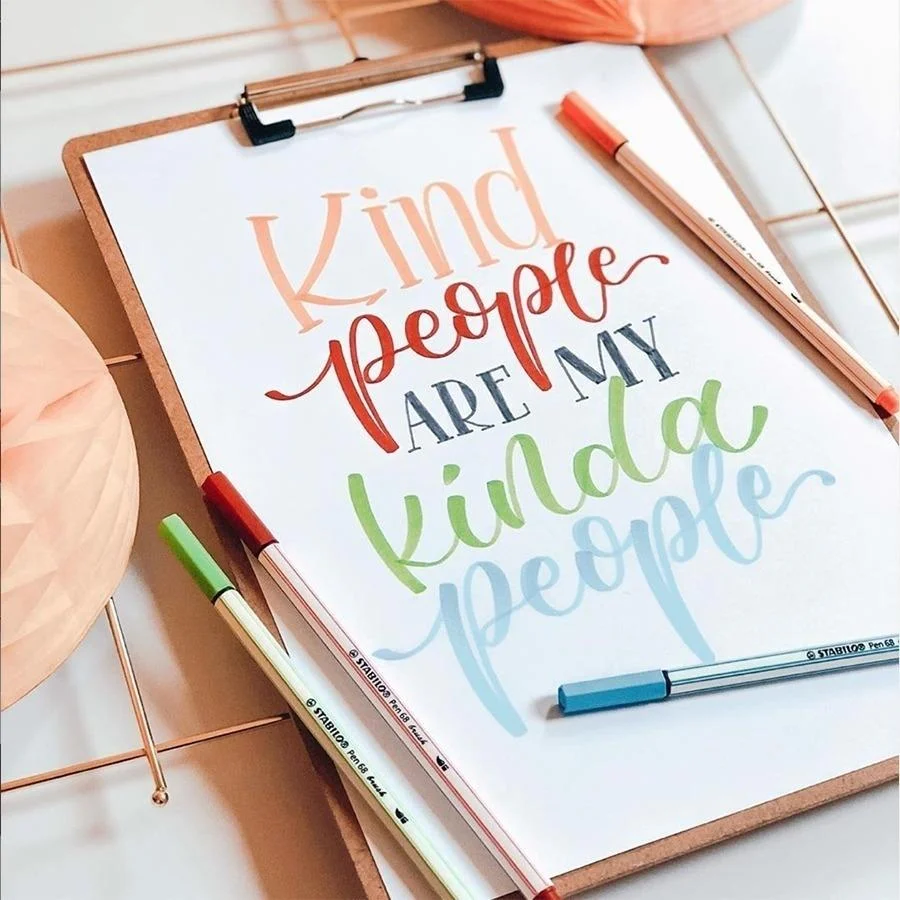 Kind
people
ARE MY
kinda
people
STABILO® Pen 68 brush
STABILO® Pen 68 brush
STABILO® Pen 68 brush
STABILO® Pen 68